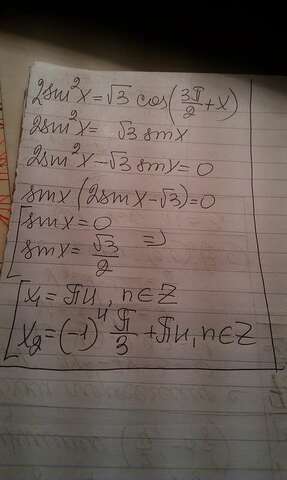 2sin²x = √3 cos(3π/2 + x)
2sin²x = √3 sinx
2sin²x - √3 sinx = 0
sinx (2sinx - √3) = 0
[ sinx = 0
sinx = √3/2 ⇒
[ x₁ = πn, n∈Z
x₂ = (-1)ⁿ π/3 + πn, n∈Z